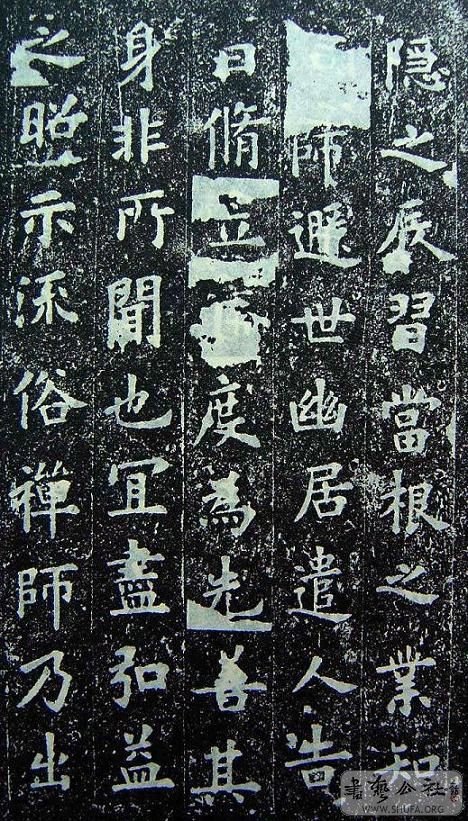 隐之辰習當根之業知
師遯世幽居遣人告
曰脩立度為先善其
身非所聞也冝盡弘益
之昭示流俗禪師乃出
書藝公社
WWW.SHUFA.ORG